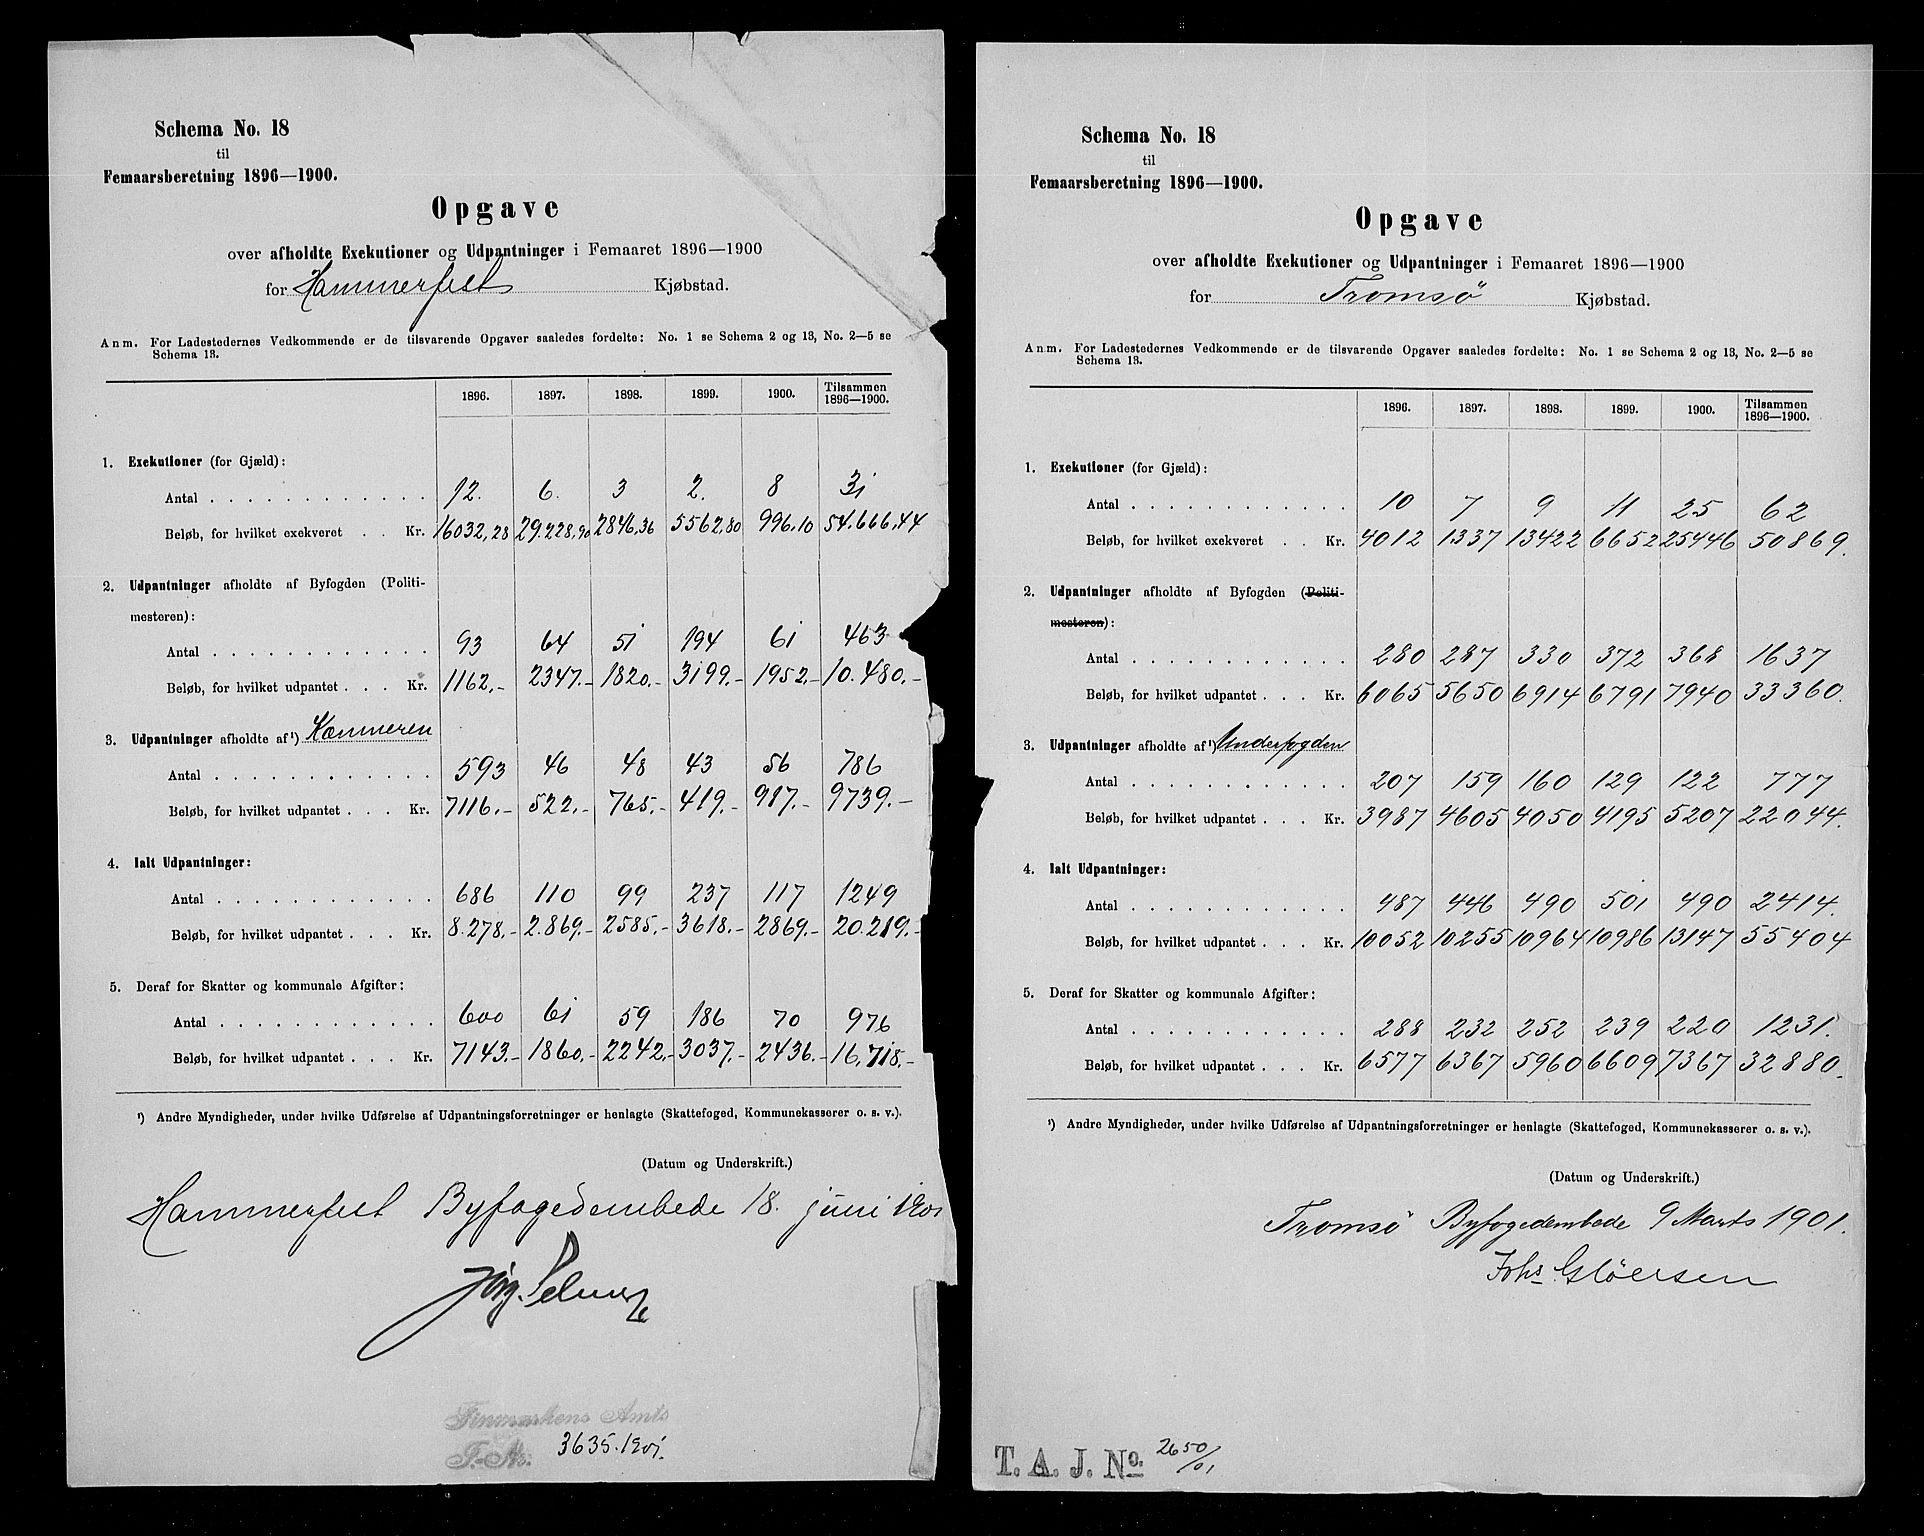 Schema No. 18
til
Femaarsberetning 1896—1900.
Opgave
over afholdte Exekutioner og Udpantninger i Femaaret 1896—1900
for Hammerfest Kjøbstad.
Anm. For Ladestedernes Vedkommende er de tilsvarende Opgaver saaledes fordelte: No. 1 se Schema 2 og 13, No. 2—5 se
Schema 13.
1896. 1897. 1898. 1899. 1900. Tilsammen 1896—1900.
1. Exekutioner (for Gjæld):
Antal . . . . . . . . . . . . 12. 6. 3 2. 8 31
Beløb, for hvilket exekveret . . Kr. 16032,28 29.228,90 2846,36 5562,80 996,10 54.666,44
2. Udpantninger afholdte af Byfogden (Politi-
mesteren):
Antal . . . . . . . . . . . . 93 64 51 194 61 463
Beløb, for hvilket udpantet . . . Kr. 1162.- 2347.- 1820.- 3199.- 1952.- 10.480.-
3. Udpantninger afholdte af ¹) Kæmneren
Antal . . . . . . . . . . . . 593 46 48 43 56 786
Beløb, for hvilket udpantet . . . Kr. 7116.- 522.- 765.- 419.- 917.- 9739.-
4. Ialt Udpantninger:
Antal . . . . . . . . . . . . 686 110 99 237 117 1249
Beløb, for hvilket udpantet . . . Kr. 8.278.- 2.869.- 2585.- 3618.- 2869.- 20.219.-
5. Deraf for Skatter og kommunale Afgifter:
Antal . . . . . . . . . . . . 600 61 59 186 70 976
Beløb, for hvilket udpantet . . . Kr. 7143.- 1860.- 2242.- 3037.- 2436.- 16.718.-
¹) Andre Myndigheder, under hvilke Udførelse af Udpantningsforretninger er henlagte (Skattefoged, Kommunekasserer o. s. v.).
(Datum og Underskrift.)
Hammerfest Byfogedembede 18. juni 1901
Jørg. Selmer
Finmarkens Amts
J.-No. 3635.1901.
Schema No. 18
til
Femaarsberetning 1896—1900.
Opgave
over afholdte Exekutioner og Udpantninger i Femaaret 1896—1900
for Tromsö Kjøbstad.
Anm. For Ladestedernes Vedkommende er de tilsvarende Opgaver saaledes fordelte: No. 1 se Schema 2 og 13, No. 2—5 se
Schema 13.
1896. 1897. 1898. 1899. 1900. Tilsammen 1896—1900.
1. Exekutioner (for Gjæld):
Antal . . . . . . . . . . . . 10 7 9 11 25 62
Beløb, for hvilket exekveret . . Kr. 4012 1337 13422 6652 25446 50869.
2. Udpantninger afholdte af Byfogden (Politi-
mesteren):
Antal . . . . . . . . . . . . 280 287 330 372 368 1637
Beløb, for hvilket udpantet . . . Kr. 6065 5650 6914 6791 7940 33360.
3. Udpantninger afholdte af ¹) Underfogden
Antal . . . . . . . . . . . . 207 159 160 129 122 777
Beløb, for hvilket udpantet . . . Kr. 3987 4605 4050 4195 5207 22044.
4. Ialt Udpantninger:
Antal . . . . . . . . . . . . 487 446 490 501 490 2414.
Beløb, for hvilket udpantet . . . Kr. 10052 10255 10964 10986 13147 55404
5. Deraf for Skatter og kommunale Afgifter:
Antal . . . . . . . . . . . . 288 232 252 239 220 1231.
Beløb, for hvilket udpantet . . . Kr. 6577 6367 5960 6609 7367 32880.
¹) Andre Myndigheder, under hvilke Udførelse af Udpantningsforretninger er henlagte (Skattefoged, Kommunekasserer o. s. v.).
(Datum og Underskrift.)
Tromsö Byfogedembede 9 Marts 1901.
Johs Glöersen
T. A. J. No. 2650/01